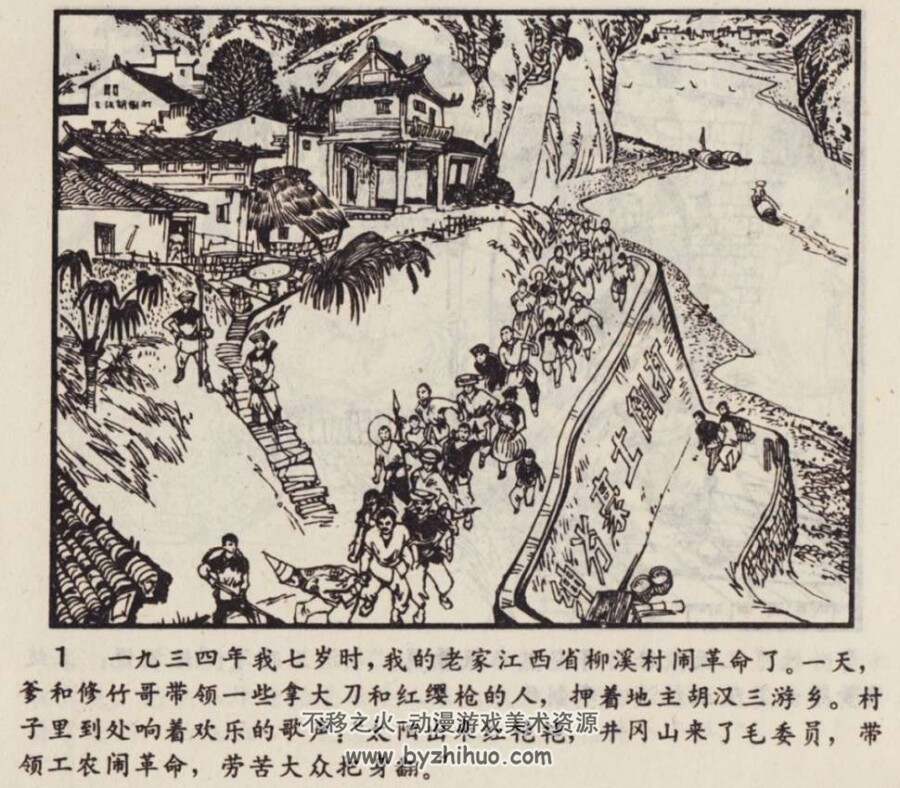 打倒土豪劣绅
1 一九三四年我七岁时,我的老家江西省柳溪村闹革命了。一天,
爹和修竹哥带领一些拿大刀和红缨枪的人,押着地主胡汉三游乡。村
子里到处响着欢乐的歌声:“太阳出来红艳艳,井冈山来了毛委员,带
不移之火-动漫游戏美术资源
领工农闹革命,劳苦大众把身翻。”
www.byzhihuo.com